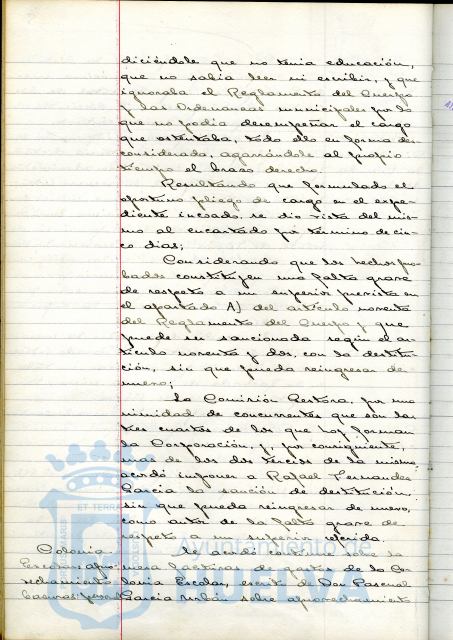 diciéndole que no tenia educación,
que no sabia leer ni escribir, y que
ignoraba el Reglamento del Cuerpo
y las Ordenanzas municipales por lo
que no podia desempeñar el cargo
que ostentaba, todo ello en forma des
considerada, agarrándole al propio
tiempo el brazo derecho.
Resultando que formulado el
oportuno pliego de cargo en el expe-
diente incoado, se dio vista del mis-
mo al encartado por término de cin-
co dias;
Considerando que los hechos pro-
bados constituyen una falta grave
de respeto a un superior prevista en
el apartado A) del artículo noventa
del Reglamento del Cuerpo y que
puede ser sancionada según el ar-
tículo noventa y dos, con la destitu-
ción, sin que pueda reingresar de
nuevo;
La Comisión Gestora, por una
nimidad de concurrentes que son las
tres cuartos de los que hoy forman
la Corporación, y, por consiguiente,
mas de los dos tercios de la misma,
acordó imponer a Rafael Fernandez
Garcia la sanción de destitución,
sin que pueda reingresar de nuevo,
como autor de la falta grave de
respeto a un superior referida.
Colonia Se acordó
Escolar: apro- facturas de gastos de la Co-
vechamiento lonia Escolar, escrit de Don Pascual
basuras: Garcia Urbán sobre aprovechamiento
ET TERRA
Ayuntamiento de
HUELVA